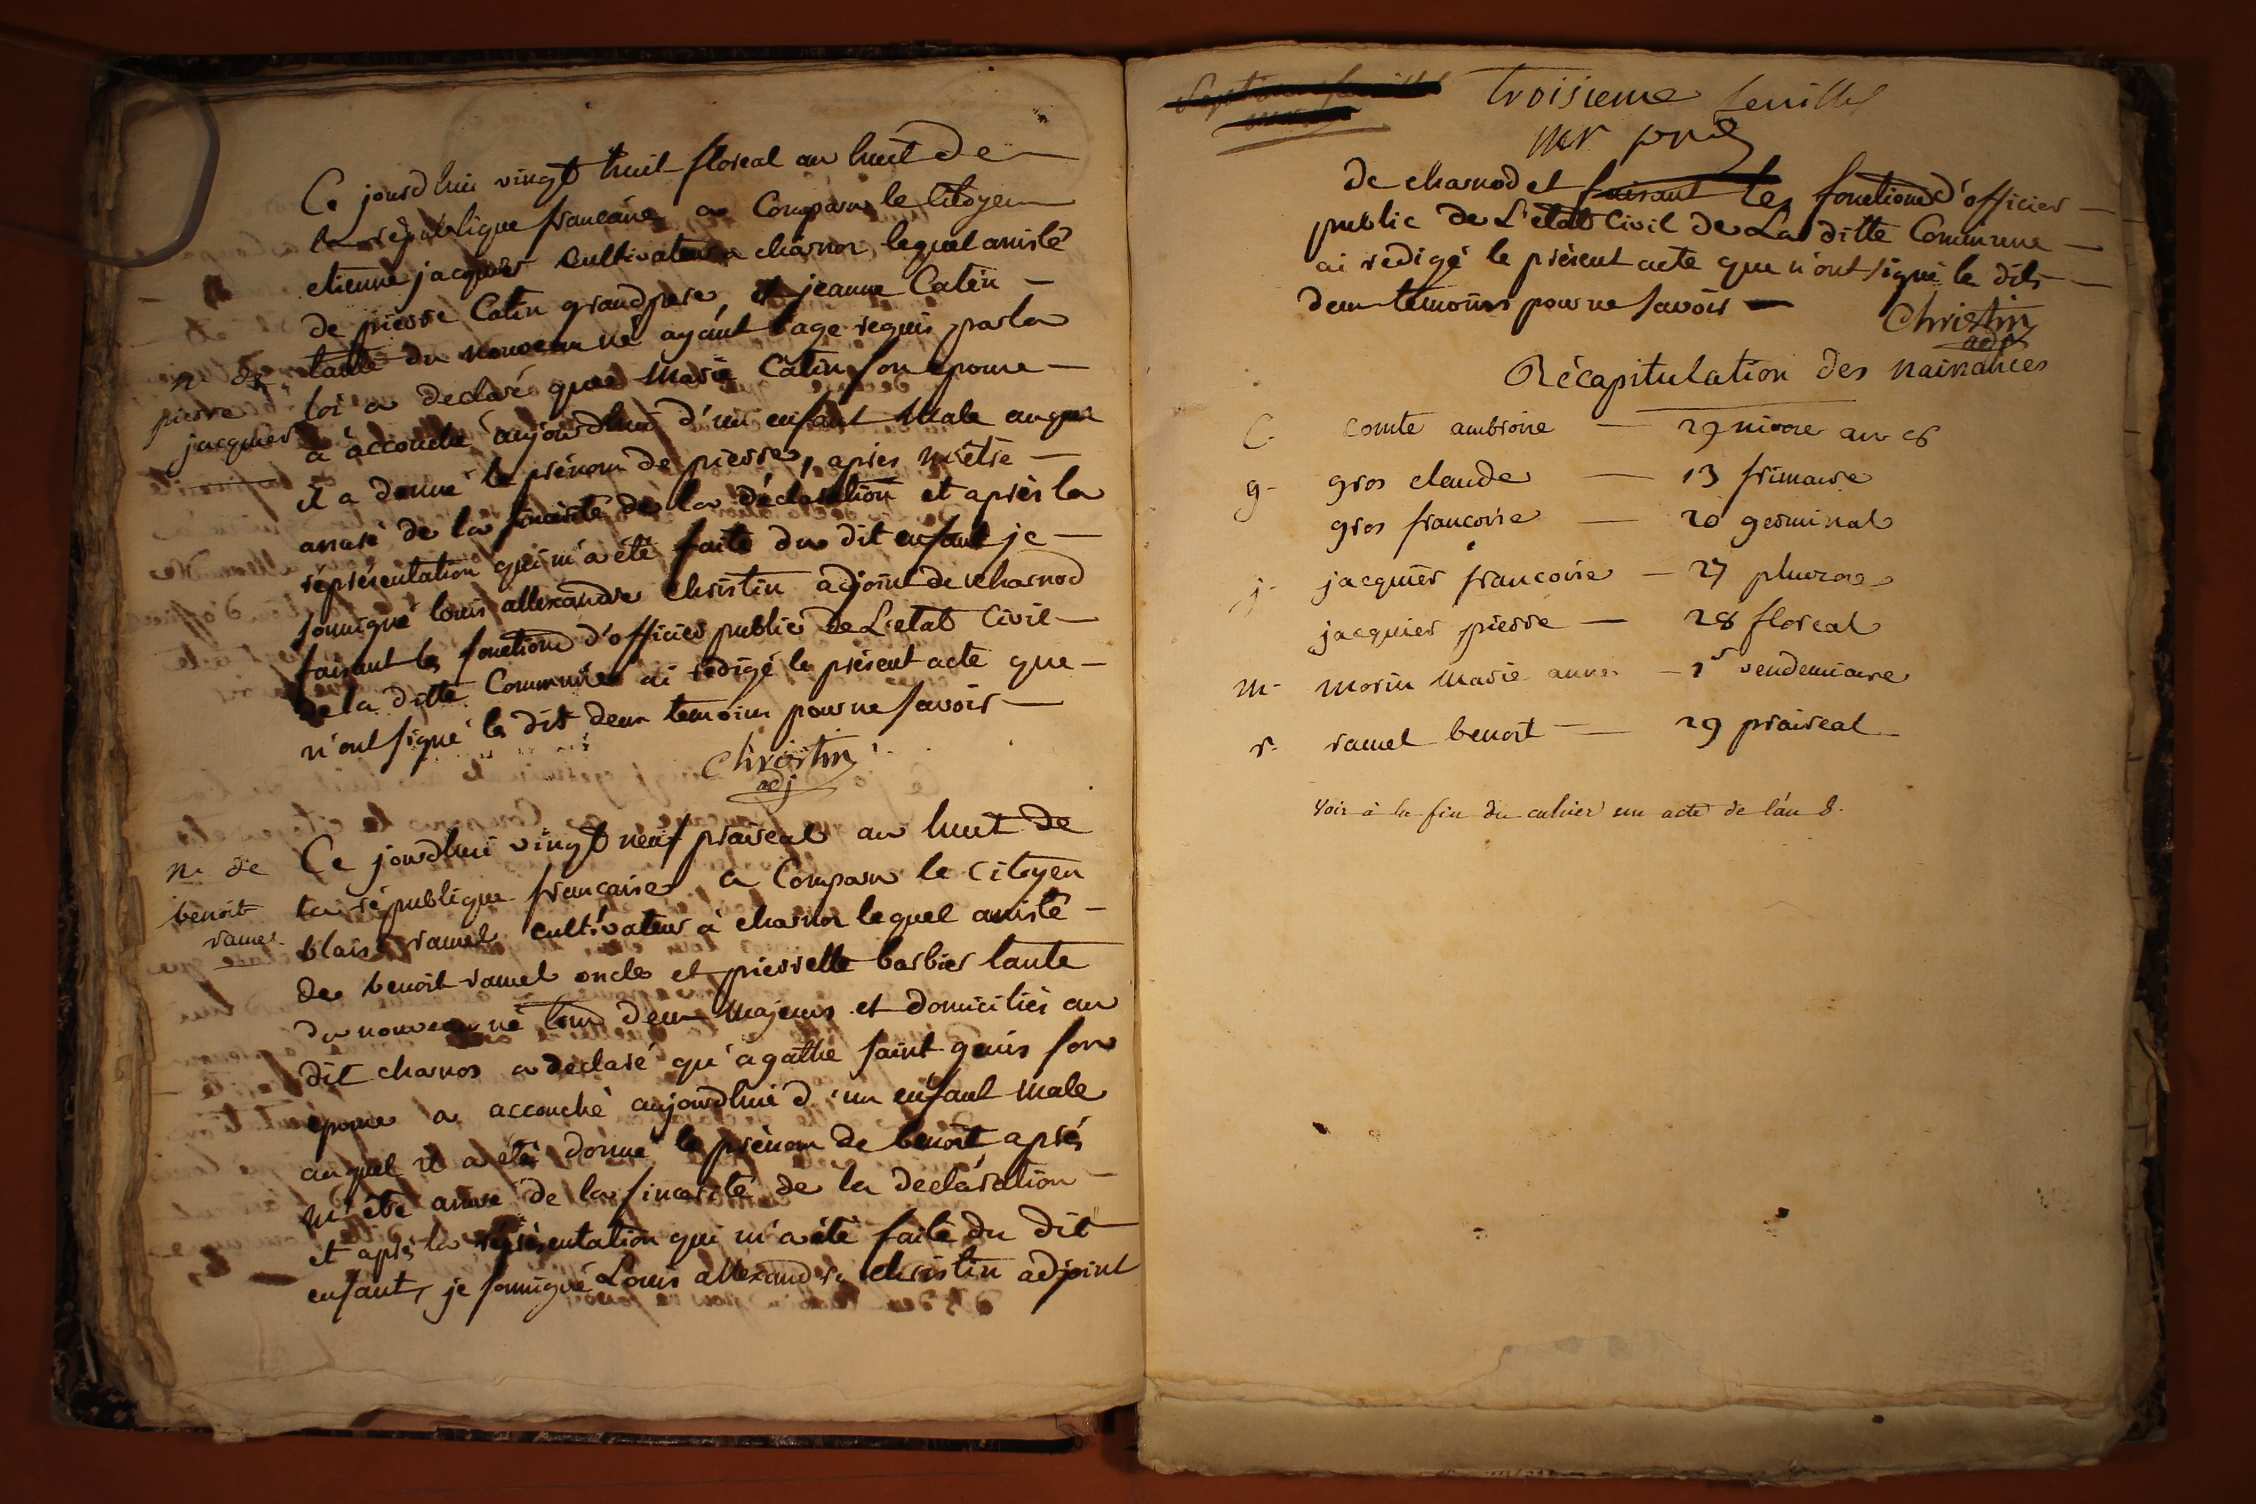 Ce jourd'hui vingt huit floreal an huit de
la république francaise a Comparu le Citoyen
etienne jacquier Cultivateur a charnox lequel assisté
de pierre Catin grandpere, et jeanne Catin
tante du nouveau né ayant l'age requis par la
loi a declaré que Marie Catin son epouse
a accouché aujourdhui d'un enfant Male auquel
il a donné le prénom de pierre, apres m'etre
assuré de la sincerité de la déclaration et après la
représentation qui m'a été faite du dit enfant je
soussigné louis allexandre Christin adjoint de charnod
faisant les fonctions d'officier public de L'etat Civil
de la ditte Commune ai rédigé le présent acte que
n'ont signé les dit deux temoins pour ne savoir
Christin
adj
n. de
pierre
jacquier
Ce jourdhui vingt neuf praireal an huit de
la république francaise a Comparu le Citoyen
blaise ramel cultivateur à charnox lequel assisté
de benoit ramel oncle et pierrette barbier tante
du nouveau né tous deux Majeurs et domiciliés au
dit charnox a declaré qu'agathe saint genis son
epouse a accouché aujourdhui d'un enfant male
auquel il a été donné le prénom de benoit après
m'etre assuré de la sincerité de la declaration
et après la représentation qui m'a été faite du dit
enfant, je soussigné Louis allexandre christin adjoint
n. de
benoit
ramel
troisieme feuillet
de charnod et faisant les fonctions d'officier
public de L'etat Civil de La ditte Commune
ai rédigé le présent acte que n'ont signé le dits
deux temoins pour ne savoir
Christin
adj
Récapitulation des naissances
C. comte ambroise — 29 nivose an 8
g- gros claude — 13 frimaire
gros francoise — 20 germinal
j- jacquier francoise — 27 pluviose
jacquier pierre — 28 floreal
m- morin Marie anne — 1r vendemiaire
r- ramel benoit — 29 praireal
Voir à la fin du cahier un acte de l'an 8.